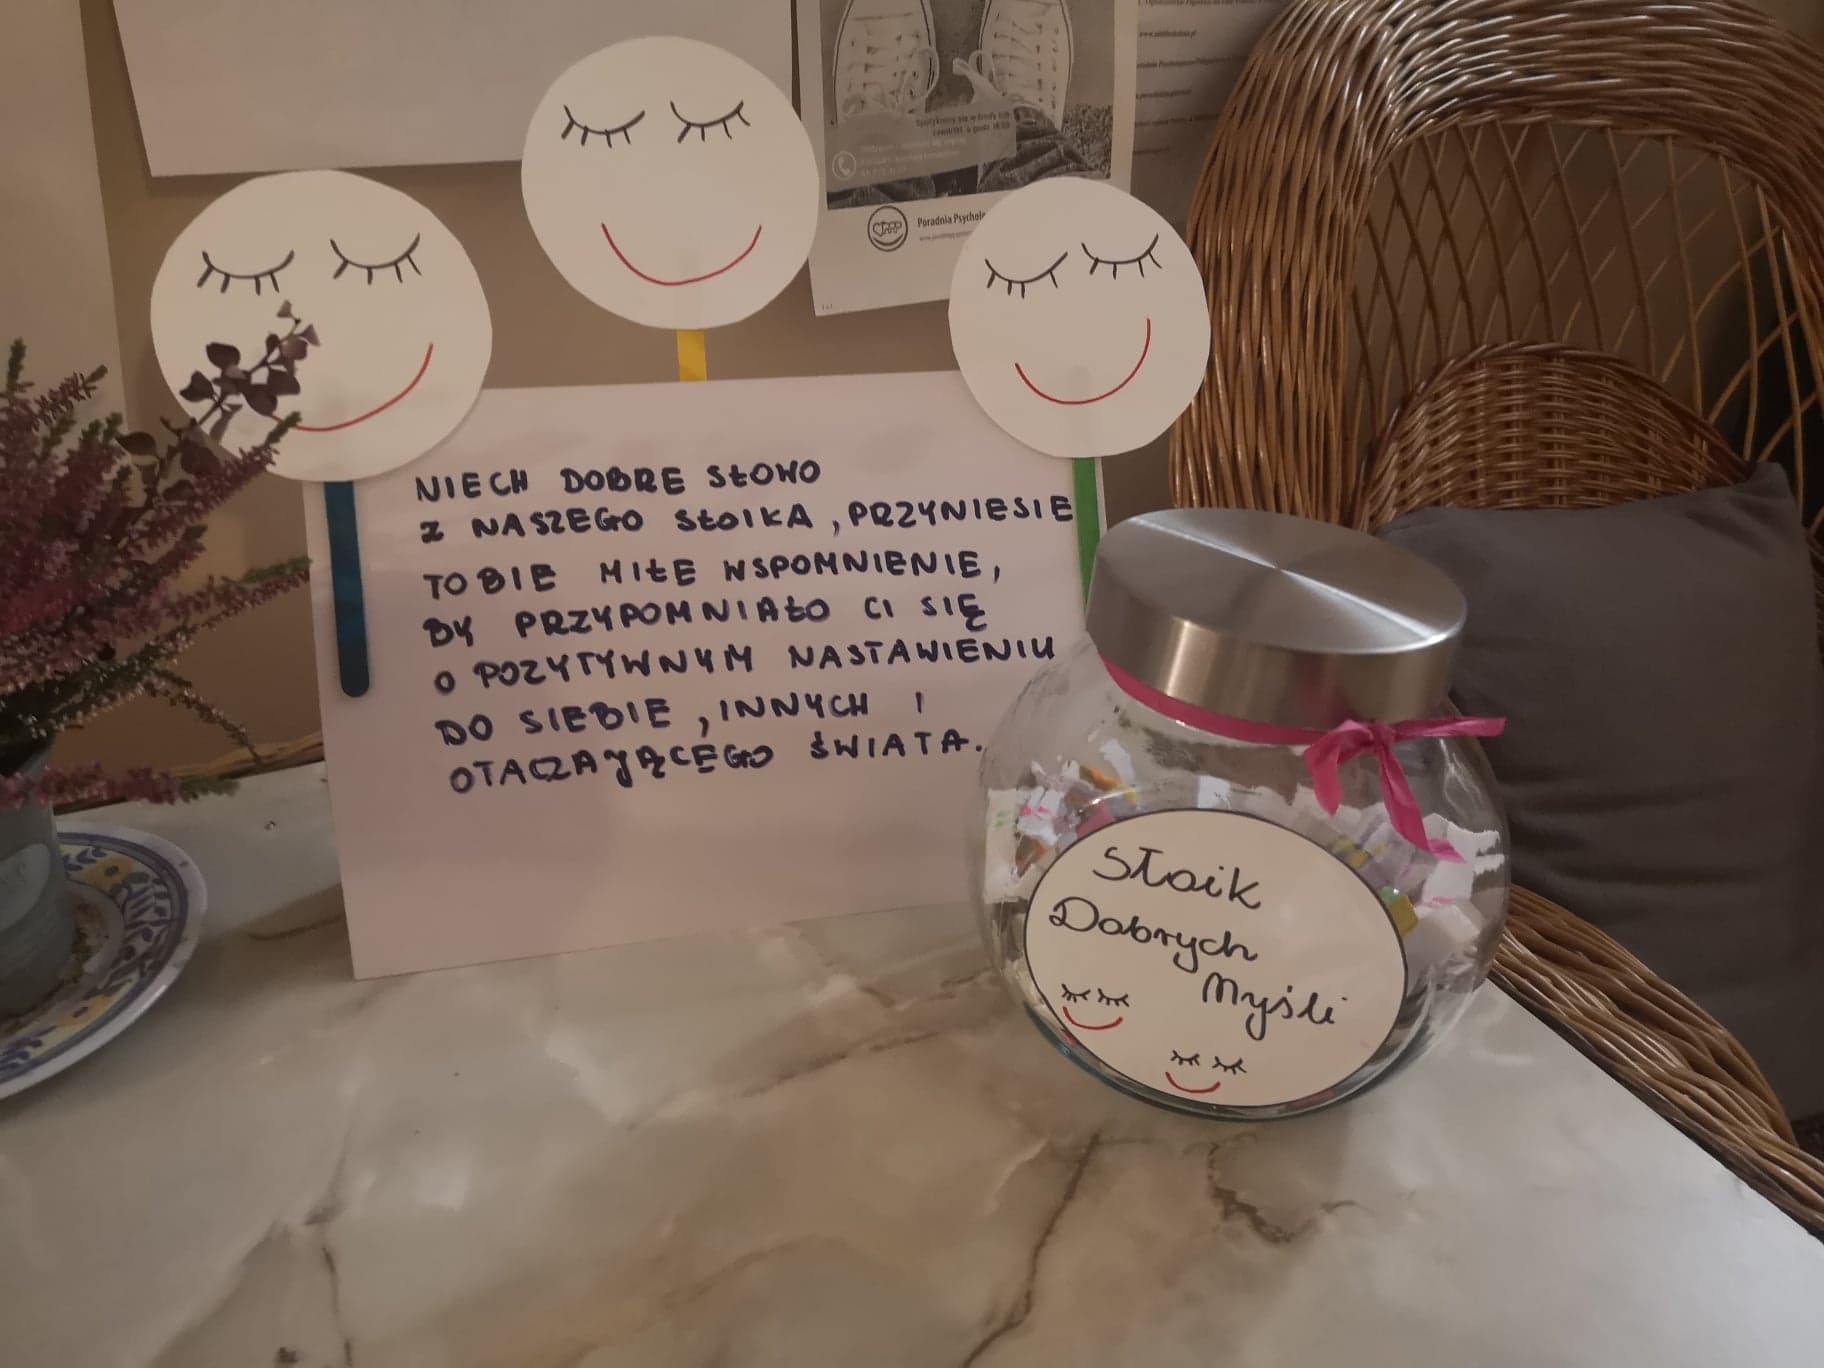 Spotykamy się w środy lub
czwartki o godz.
Poradnia
NIECH DOBRE SŁOWO
Z NASZEGO SŁOIKA, PRZYNIESIE
TOBIE MIŁE WSPOMNIENIE,
BY PRZYPOMNIAŁO CI SIĘ
O POZYTYWNYM NASTAWIENIU
DO SIEBIE, INNYCH I
OTACZAJĄCEGO ŚWIATA.
Słoik
Dobrych
Myśli